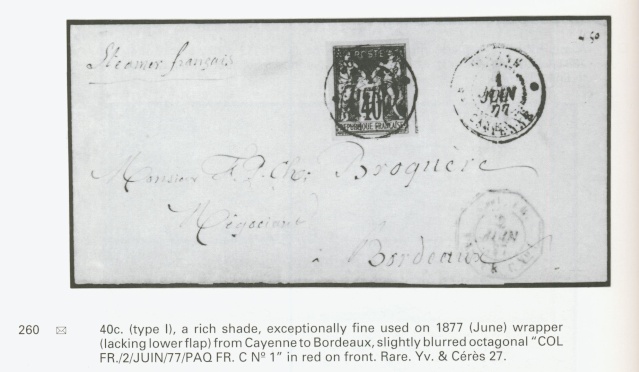 Steamer français
40
POSTE
40
REPUBLIQUE FRANÇAISE
1
JUIN
77
CAYENNE
Monsieur F. P. Broquère
Négociant
à Bordeaux
2
JUIN
260 40c. (type I), a rich shade, exceptionally fine used on 1877 (June) wrapper
(lacking lower flap) from Cayenne to Bordeaux, slightly blurred octagonal "COL
FR./2/JUIN/77/PAQ FR. C Nº 1" in red on front. Rare. Yv. & Cérès 27.